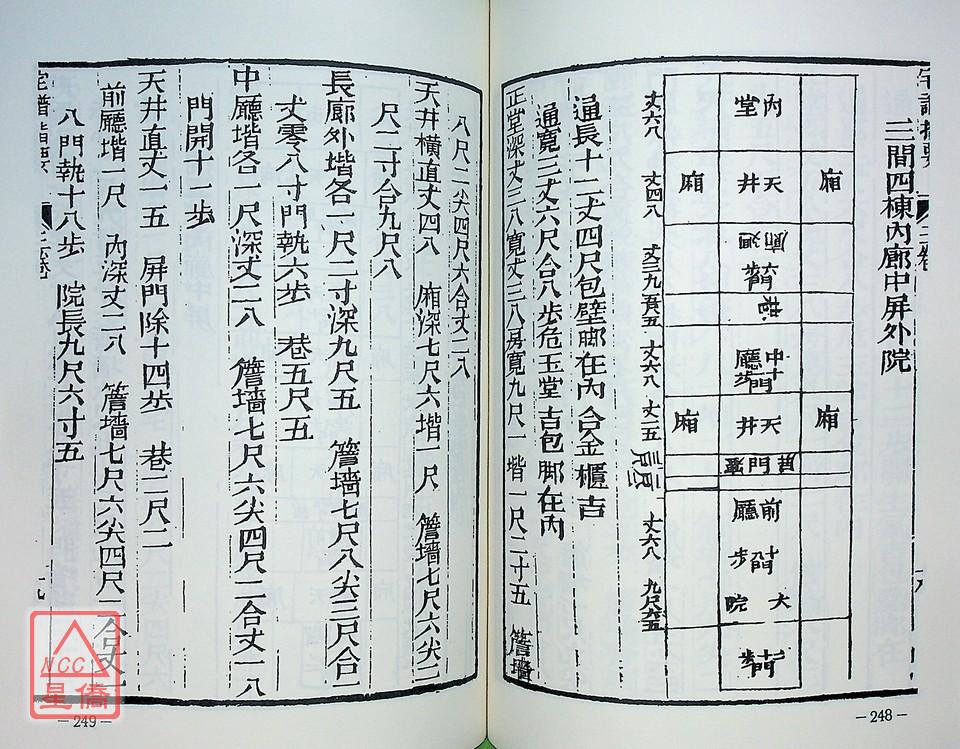 三間四棟內廊中屏外院
內堂
丈六八
廂
天井
廂
丈四八
丈六八
中廳
丈二五
廂
天井
廂
前廳
步
丈六八
大院
九尺六五
通長十二丈四尺包壁腳在內合金櫃吉
通寬三丈六尺合八步危玉堂吉包腳在內
正堂深丈三八寬丈三八房寬九尺一堦一尺二十五 簷墻
八尺二尖四尺六合丈二八
天井橫直丈四八 廂深七尺六堦一尺 簷墻七尺六尖二
尺二寸合九尺八
長廊外堦各一尺二寸深九尺五 簷墻七尺八尖三尺合
丈零八寸門執六步 巷五尺五
中廳堦各一尺深丈二八 簷墻七尺六尖四尺二合丈一八
門開十一步
天井直丈一五 屏門除十四步 巷二尺二
前廳堦一尺 內深丈二八 簷墻七尺六尖四尺二合丈一
八門執十八步 院長九尺六寸五
三卷
十九
NCC
星僑
—249—
—248—